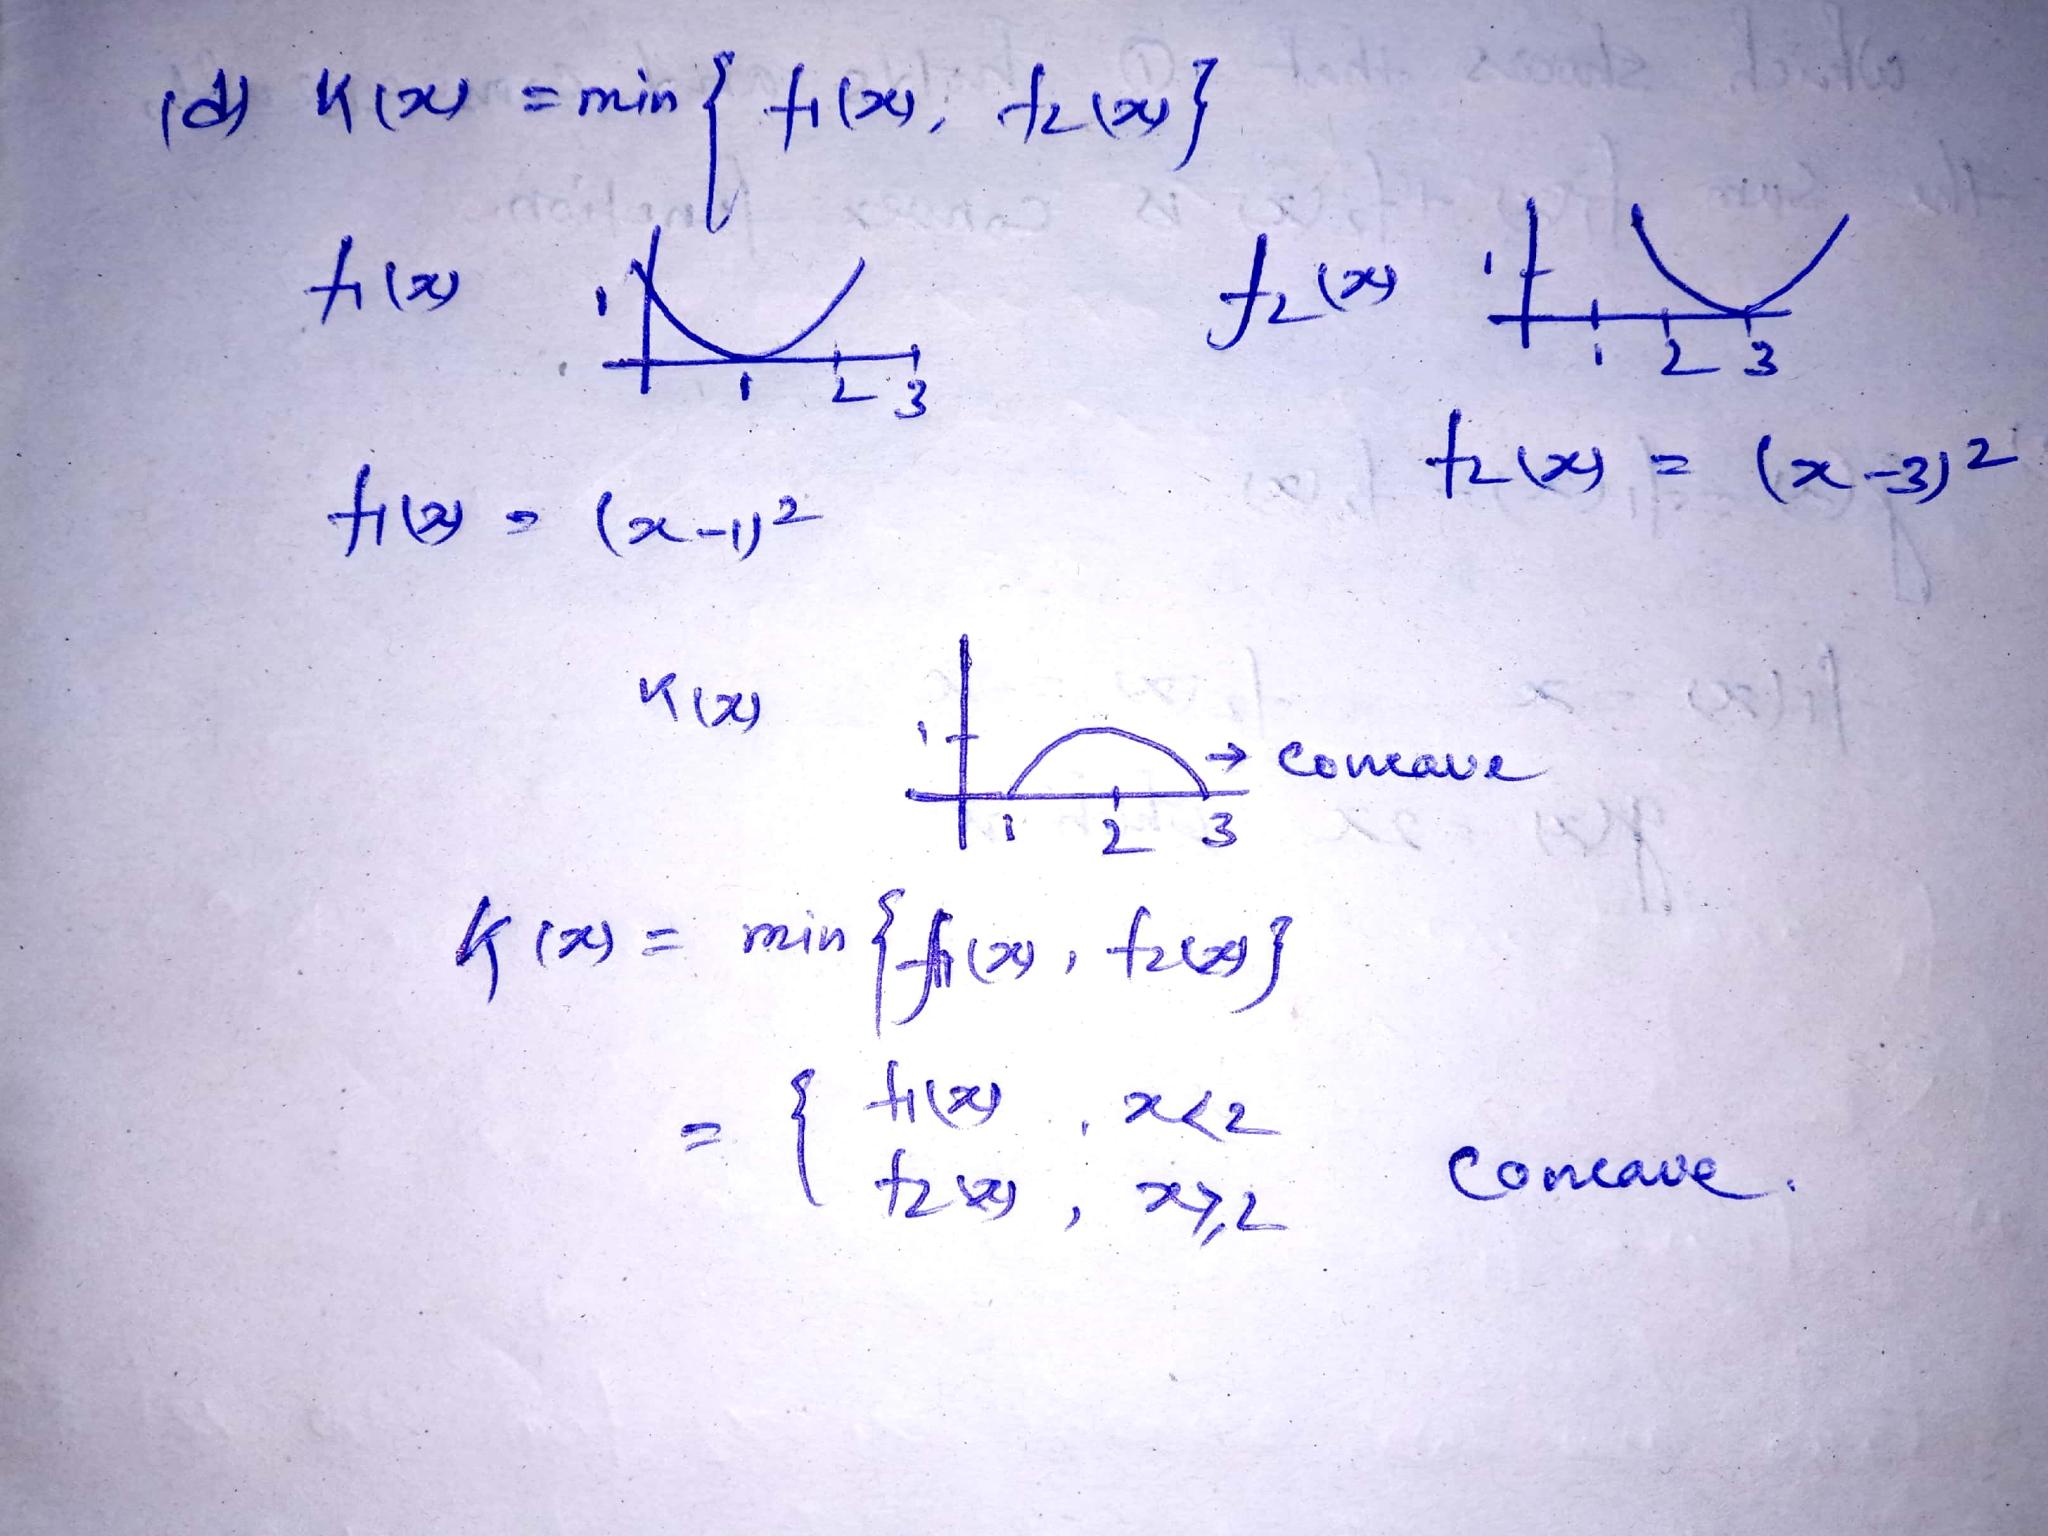 (d) K(x) = min { f1(x), f2(x) }
f1(x) 1 1 2 3
f2(x) 1 1 2 3
f1(x) = (x-1)²
f2(x) = (x-3)²
K(x) 1 → Concave
1 2 3
K(x) = min { f1(x), f2(x) }
= { f1(x) , x<2
f2(x) , x≥2 Concave.